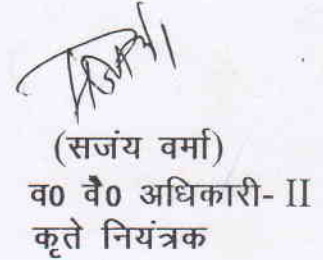 (सजंय वर्मा)
व0 वै0 अधिकारी- II
कृते नियंत्रक